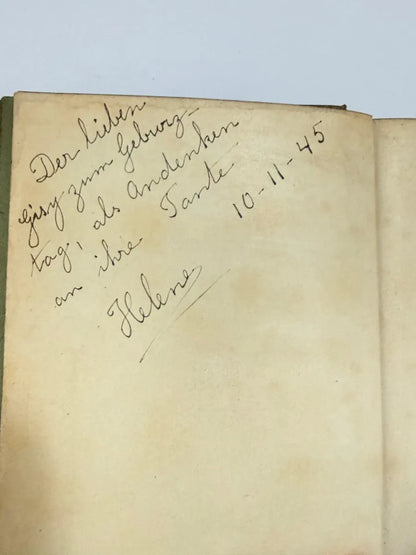 Der lieben
Gisy zum Geburz-
tag, als Andenken
an ihre Tante
10-11-45
Helene